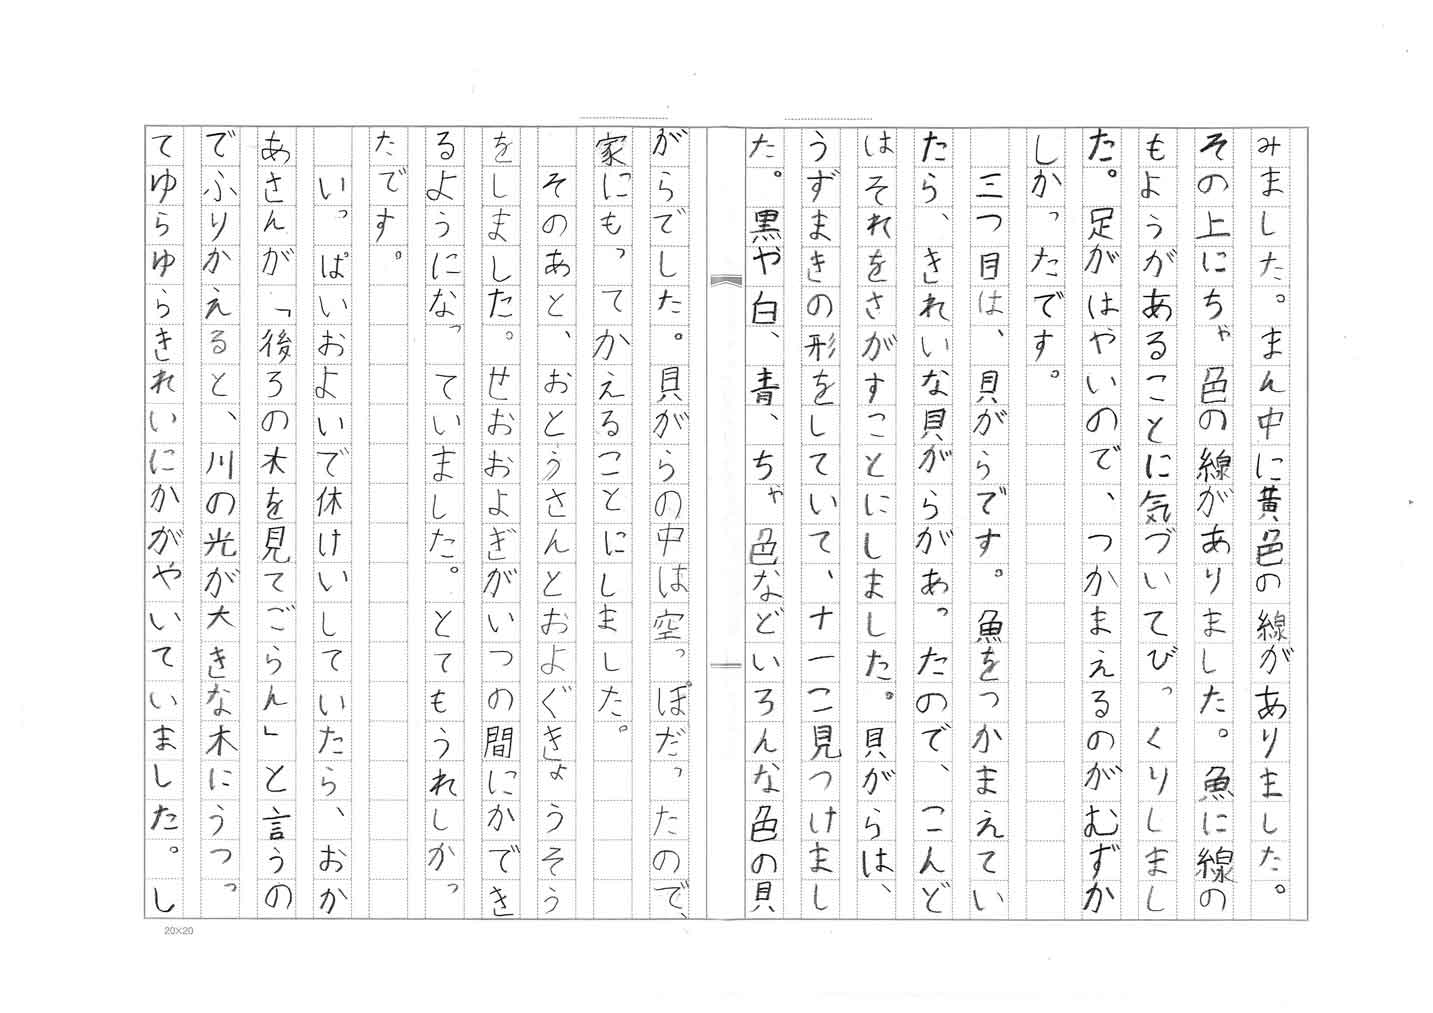 みました。まん中に黄色の線がありました。
その上にちゃ色の線がありました。魚に線の
もようがあることに気づいてびっくりしまし
た。足がはやいので、つかまえるのがむずか
しかったです。
三つ目は、貝がらです。魚をつかまえてい
たら、きれいな貝がらがあったので、こんど
はそれをさがすことにしました。貝がらは、
うずまきの形をしていて、十一こ見つけまし
た。黒や白、青、ちゃ色などいろんな色の貝
がらでした。貝がらの中は空っぽだったので、
家にもってかえることにしました。
そのあと、おとうさんとおよぐきょうそう
をしました。せおおよぎがいつの間にかでき
るようになっていました。とてもうれしかっ
たです。
いっぱいおよいで休けいしていたら、おか
あさんが「後ろの木を見てごらん」と言うの
でふりかえると、川の光が大きな木にうつっ
てゆらゆらきれいにかがやいていました。し
20×20